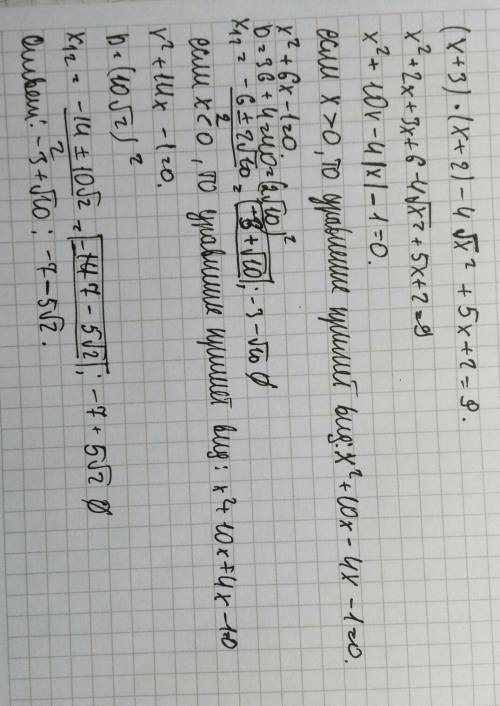 (x+3)·(x+2)-4√x² + 5x+2=9.
x²+2x+3x+6-4√x²+5x+2=9
x²+10x-4|x|-1=0.
если x>0, то уравнение примет вид: x²+10x-4x-1=0.
x²+6x-1=0.
D=36+4=40=(2√10)²
x₁,₂ = -6±2√10/2 = -3+√10; -3-√10 ∅
если x<0, то уравнение примет вид: x²+10x+4x-1=0
x²+14x-1=0.
D=(10√2)²
x₁,₂ = -14±10√2/2 = -7-5√2; -7+5√2 ∅
ответ: -3+√10; -7-5√2.